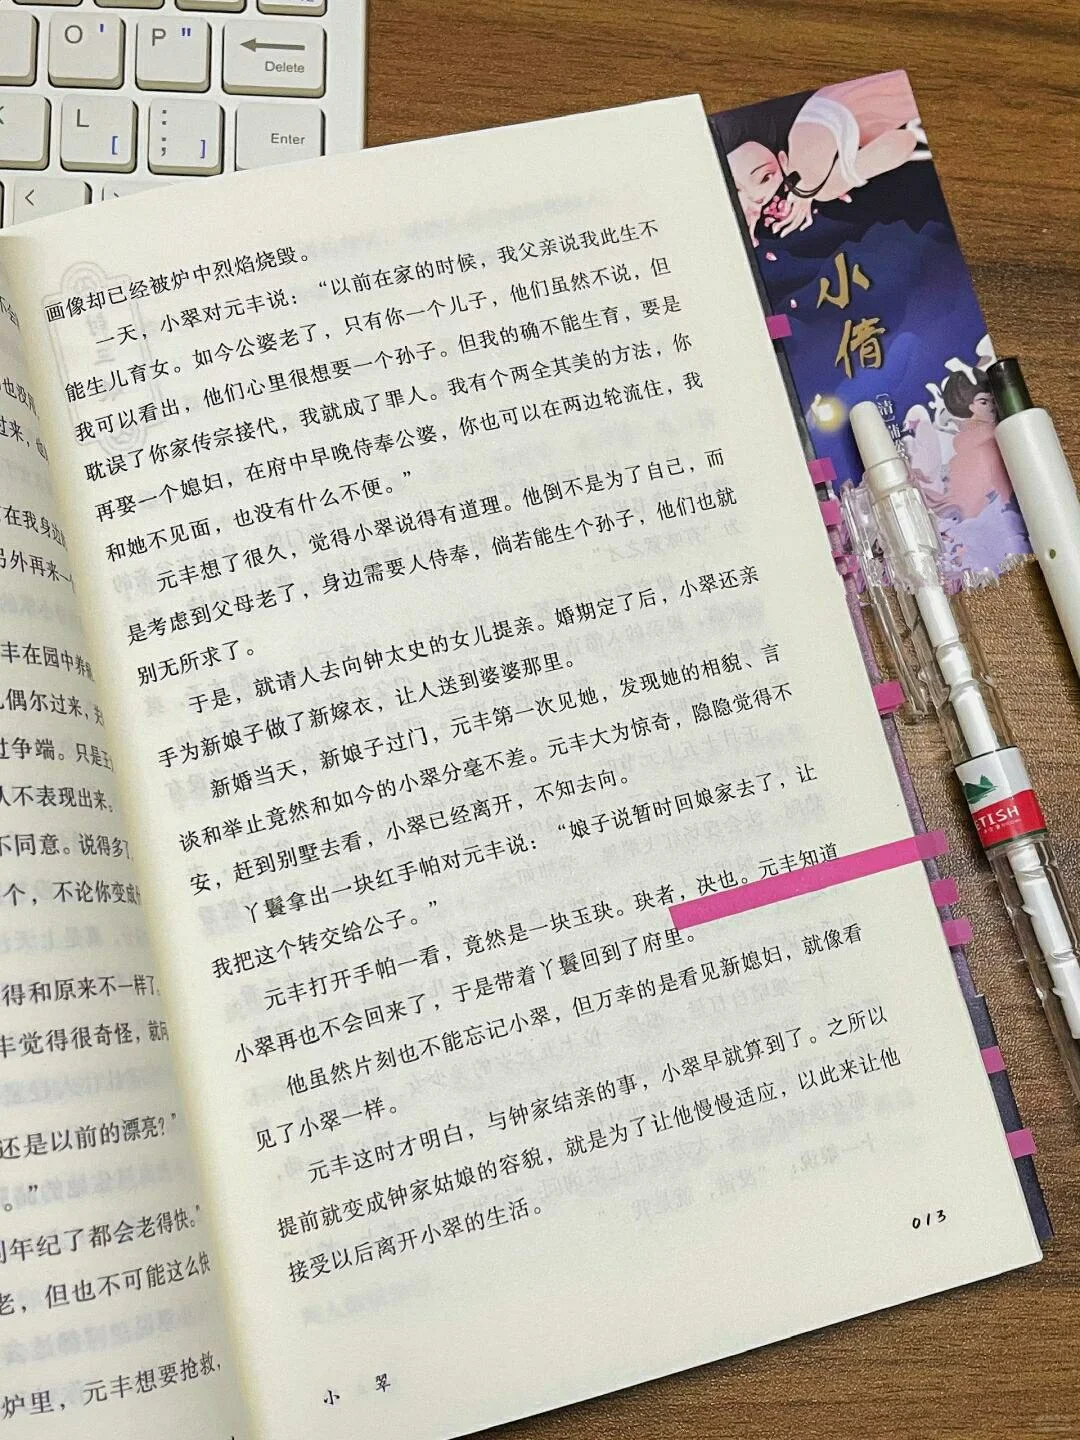 O '
P "
Delete
K
L [
: ; ]
Enter
<
画像却已经被炉中烈焰烧毁。
一天，小翠对元丰说：“以前在家的时候，我父亲说我此生不
能生儿育女。如今公婆老了，只有你一个儿子，他们虽然不说，但
我可以看出，他们心里很想要一个孙子。但我的确不能生育，要是
耽误了你家传宗接代，我就成了罪人。我有个两全其美的方法，你
再娶一个媳妇，在府中早晚侍奉公婆，你也可以在两边轮流住，我
和她不见面，也没有什么不便。”
元丰想了很久，觉得小翠说得有道理。他倒不是为了自己，而
是考虑到父母老了，身边需要人侍奉，倘若能生个孙子，他们也就
别无所求了。
于是，就请人去向钟太史的女儿提亲。婚期定了后，小翠还亲
手为新娘子做了新嫁衣，让人送到婆婆那里。
新婚当天，新娘子过门，元丰第一次见她，发现她的相貌、言
谈和举止竟然和如今的小翠分毫不差。元丰大为惊奇，隐隐觉得不
安，赶到别墅去看，小翠已经离开，不知去向。
丫鬟拿出一块红手帕对元丰说：“娘子说暂时回娘家去了，让
我把这个转交给公子。”
元丰打开手帕一看，竟然是一块玉玦。玦者，决也。元丰知道
小翠再也不会回来了，于是带着丫鬟回到了府里。
他虽然片刻也不能忘记小翠，但万幸的是看见新媳妇，就像看
见了小翠一样。
元丰这时才明白，与钟家结亲的事，小翠早就算到了。之所以
提前就变成钟家姑娘的容貌，就是为了让他慢慢适应，以此来让他
接受以后离开小翠的生活。
013
小 翠
过来，
在我身边
另外再来一个
丰在园中养
偶尔过来，
过争端。只是王
人不表现出来。
不同意。说得多了
个，不论你变成
得和原来不一样了。
丰觉得很奇怪，就问
还是以前的漂亮？”
。”
年纪了都会老得快。”
老，但也不可能这么快
炉里，元丰想要抢救，
小
倩
〔清〕蒲
ETISH